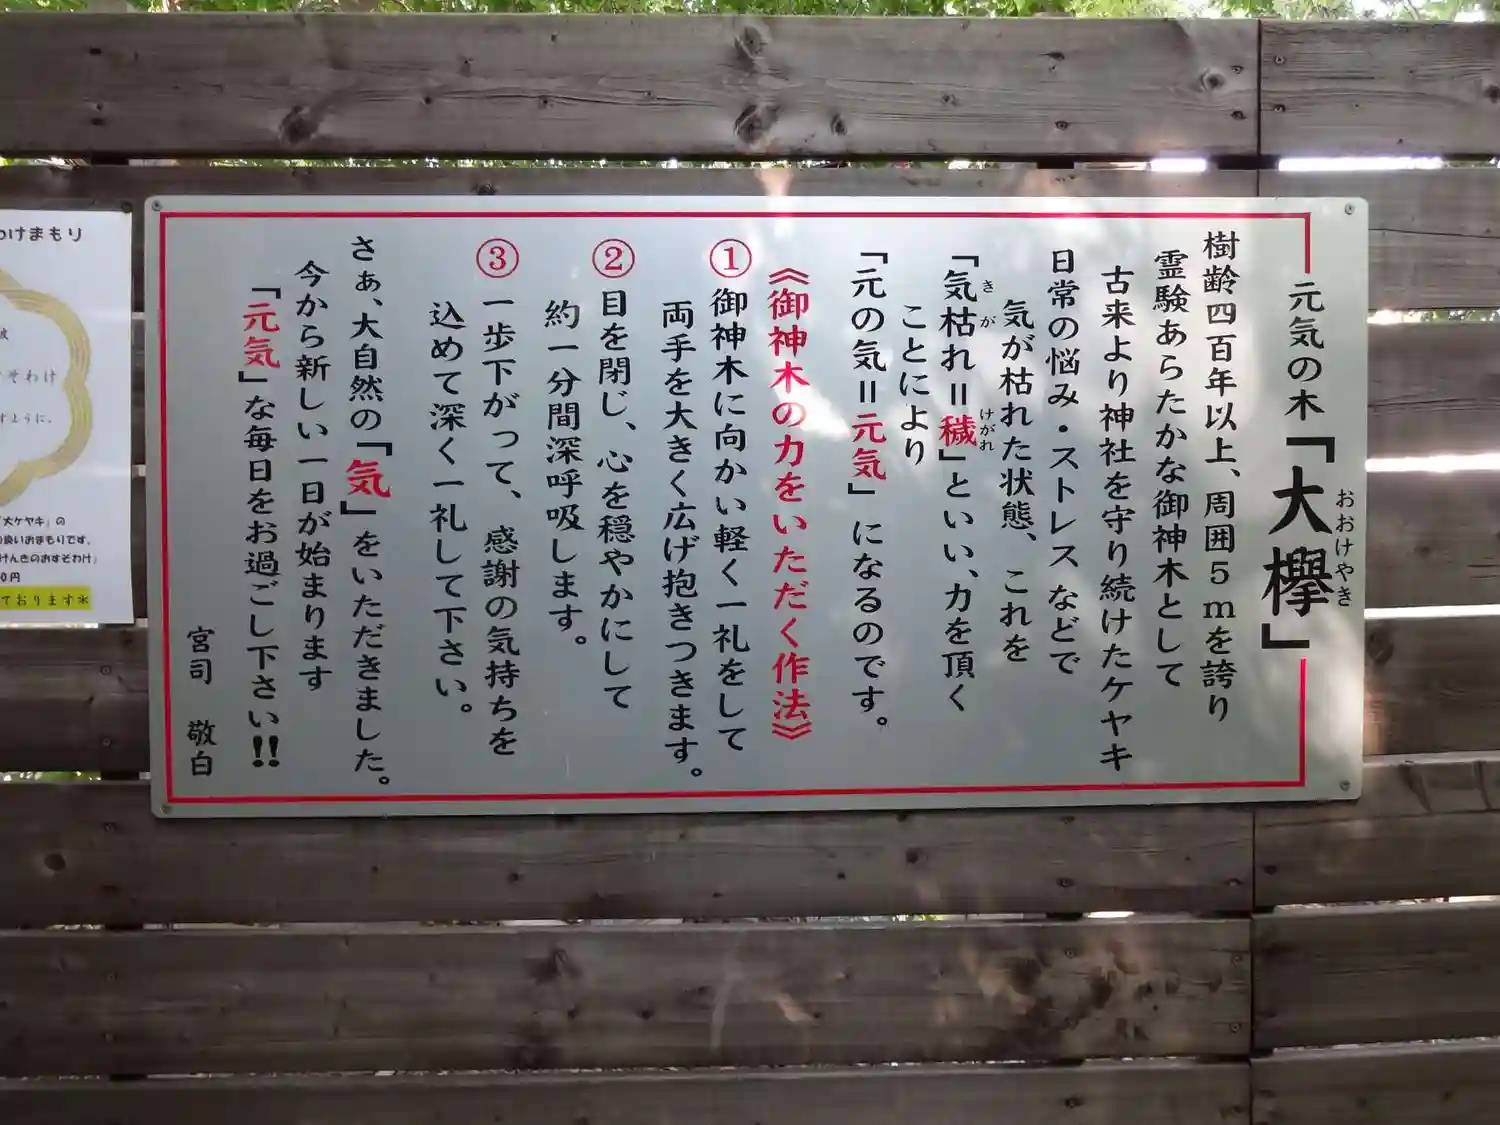 元気の木「大欅」
おおけやき
樹齢四百年以上、周囲5mを誇り
霊験あらたかな御神木として
古来より神社を守り続けたケヤキ
日常の悩み・ストレスなどで
気が枯れた状態、これを
「気枯れ=穢」といい、力を頂く
きが
けがれ
ことにより
「元の気=元気」になるのです。
《御神木の力をいただく作法》
①御神木に向かい軽く一礼をして
両手を大きく広げ抱きつきます。
②目を閉じ、心を穏やかにして
約一分間深呼吸します。
③一歩下がって、感謝の気持ちを
込めて深く一礼して下さい。
さぁ、大自然の「気」をいただきました。
今から新しい一日が始まります
「元気」な毎日をお過ごし下さい!!
宮司 敬白
わけまもり
そわけ
すように。
「大ケヤキ」の
良いおまもりです。
けんきのおすそわけ」
0円
ております※